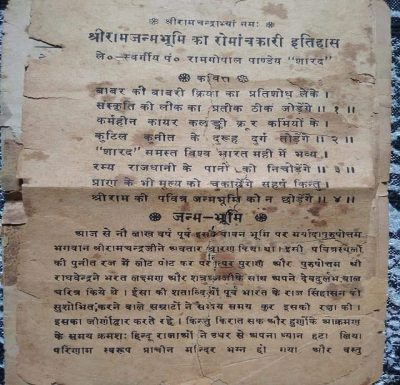 ❋ श्रीरामचन्द्राभ्यां नमः ❋
श्रीरामजन्मभूमि का रोमांचकारी इतिहास
ले०-स्वर्गीय पं० रामगोपाल पाण्डेय "शारद"
❋ कवित्त ❋
बाबर की बाबरी क्रिया का प्रतिशोध लेके ।
संस्कृति की लीक का प्रतीक ठीक जोड़ेंगे ॥ १ ॥
कर्महीन कायर कलङ्की क्रूर कमियों के ।
कुटिल कुनीत के दुरूह दुर्ग तोड़ेंगे ॥ २ ॥
"शारद" समस्त विश्व भारत मही में भव्य,
रम्य राजधानी के पानों को निचोड़ेंगे ॥ ३ ॥
प्राण के भी मूल्य को चुकायेंगे सहर्ष किन्तु
श्रीराम की पवित्र जन्मभूमि को न छोड़ेंगे ॥ ४ ॥
❋ जन्म-भूमि ❋
आज से नौ लाख वर्ष पूर्व इसी पावन भूमि पर मर्यादा पुरुषोत्तम
भगवान श्रीरामचन्द्रजीने अवतार धारण किया था। इसी पवित्रस्थली
की पुनीत रज में लोट पोट कर परात्पर पुराण और पुरुषोत्तम श्री
राघवेन्द्रने भरत लक्ष्मण और शत्रुघ्नजीके साथ अपने देवदुर्लभ बाल
चरित्र किये थे । ईसा की शताब्दियों पूर्व भारत के राज सिंहासन को
सुशोभित करने वाले सम्राटों ने समय कुर इसकी रक्षा की ।
इसका जीर्णोद्वार करते रहे । किन्तु किरात सक और हुणोंके आक्रमण
के समय क्रमशः हिन्दू राजाओं ने उधर से अपना ध्यान हटा लिया
परिणाम स्वरूप प्राचीन मन्दिर भग्न हो गया और वस्तु